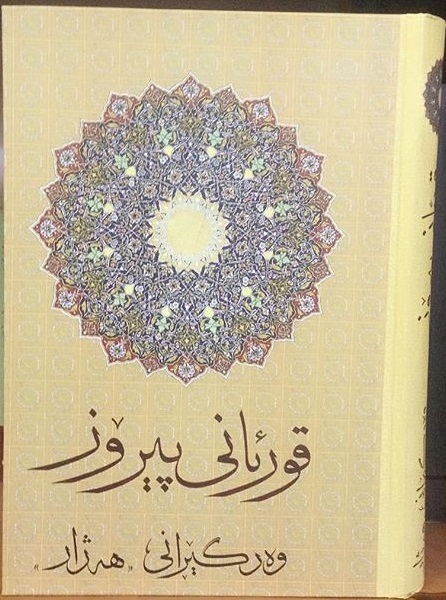 قورئانی پیرۆز
وەرگێڕانی «هەژار»